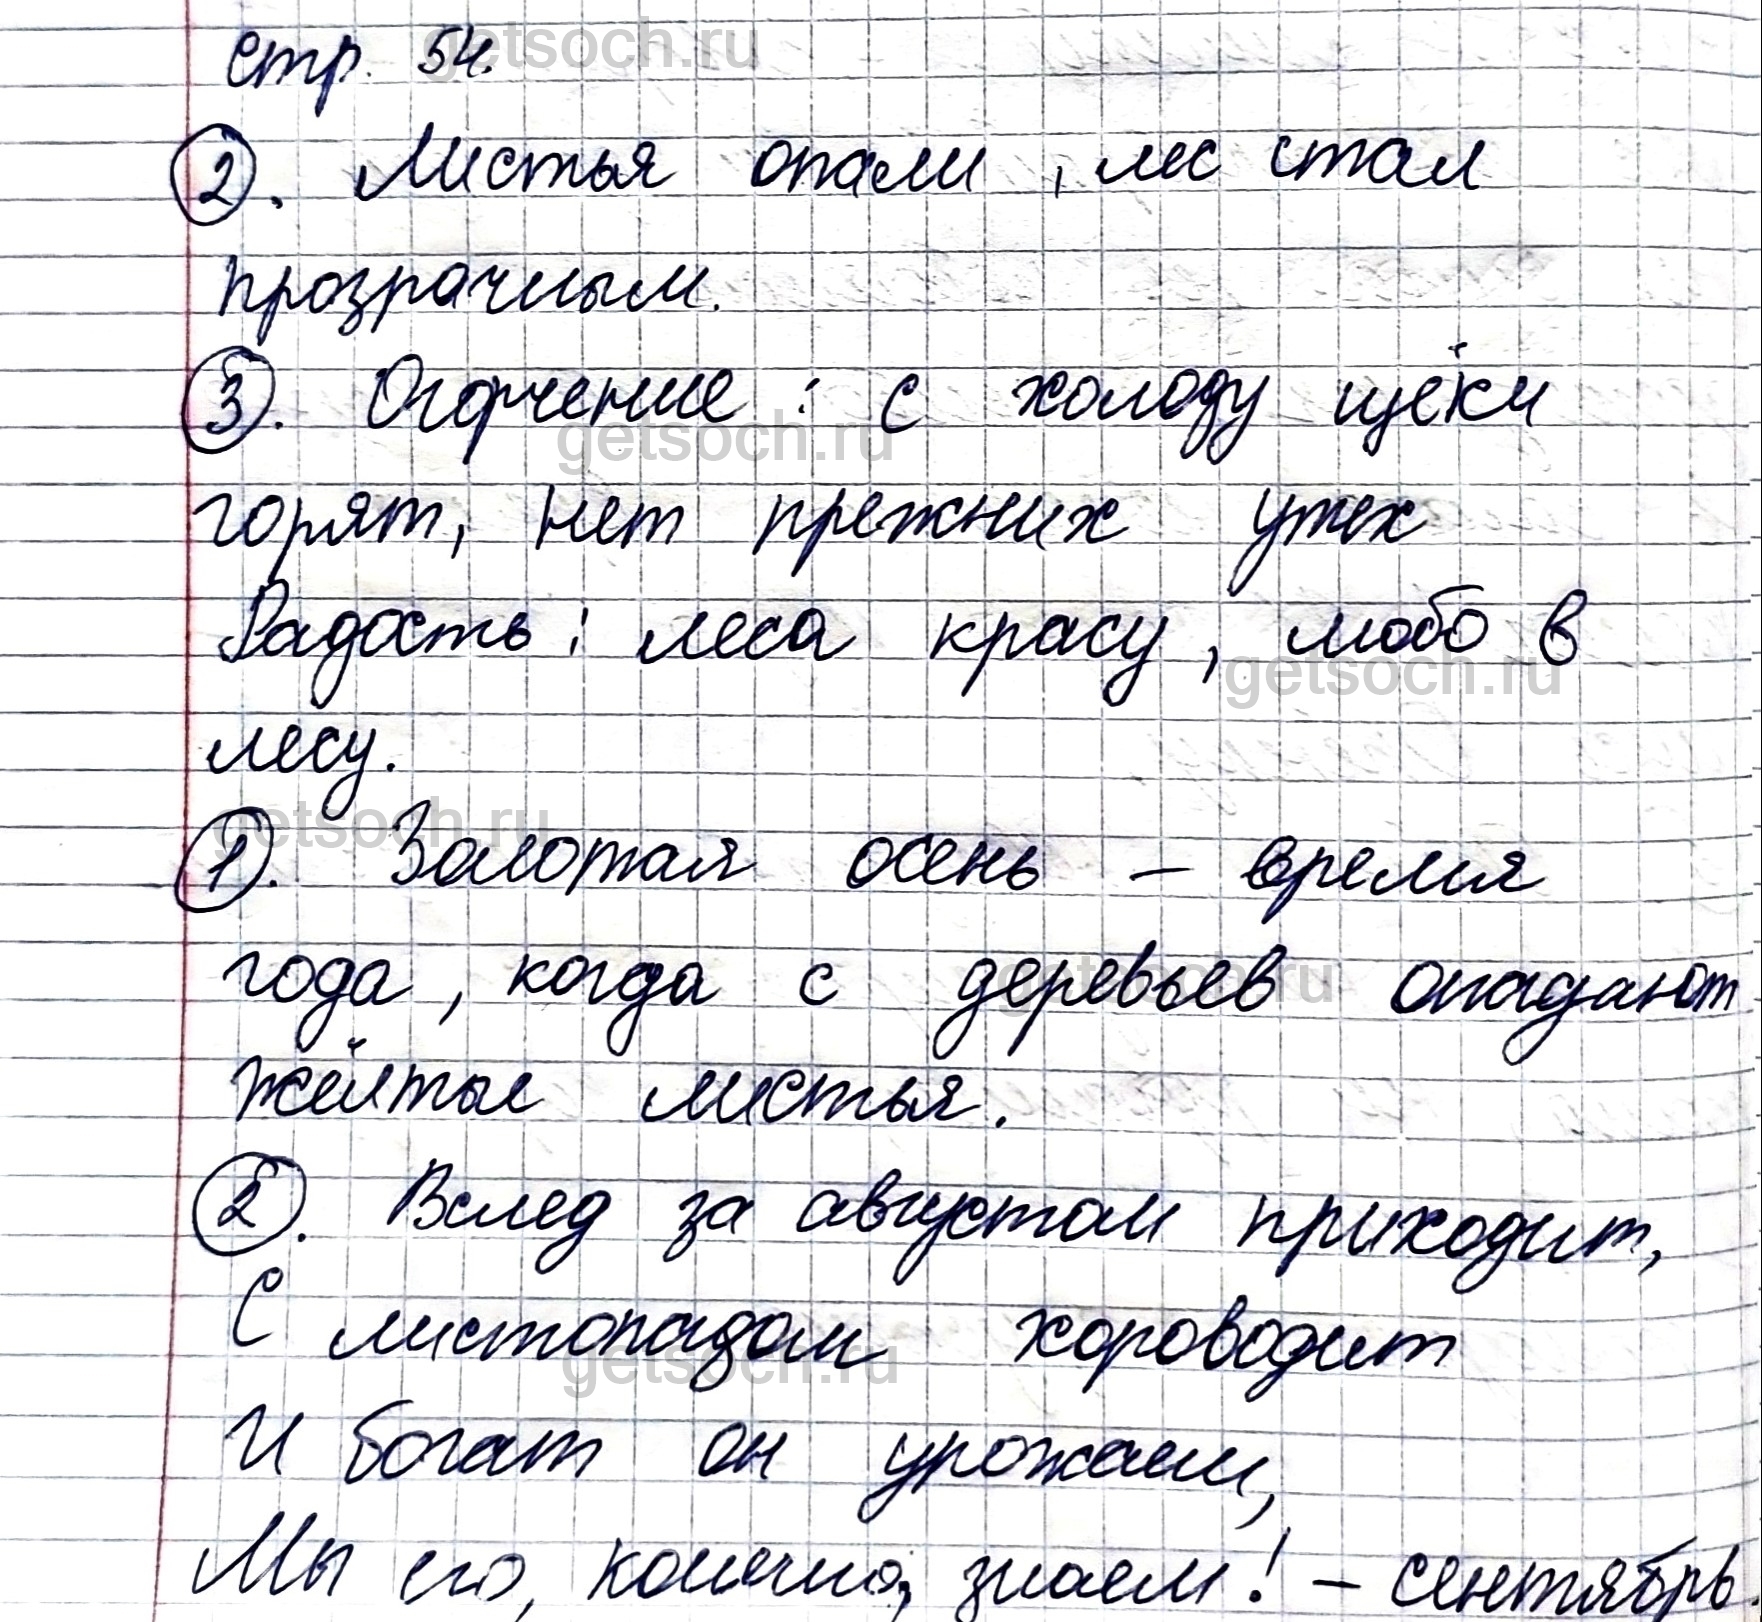 стр. 54.
2. Листья опали, лес стал
прозрачным.
3. Огорчение: с холоду щёки
горят, нет прежних утех
Радость: леса красу, любо в
лесу.
1. Золотая осень – время
года, когда с деревьев опадают
жёлтые листья.
2. Вслед за августом приходит,
С листопадом хороводит
И богат он урожаем,
Мы его, конечно, знаем! – сентябрь.
getsoch.ru
getsoch.ru
getsoch.ru
getsoch.ru
getsoch.ru
getsoch.ru